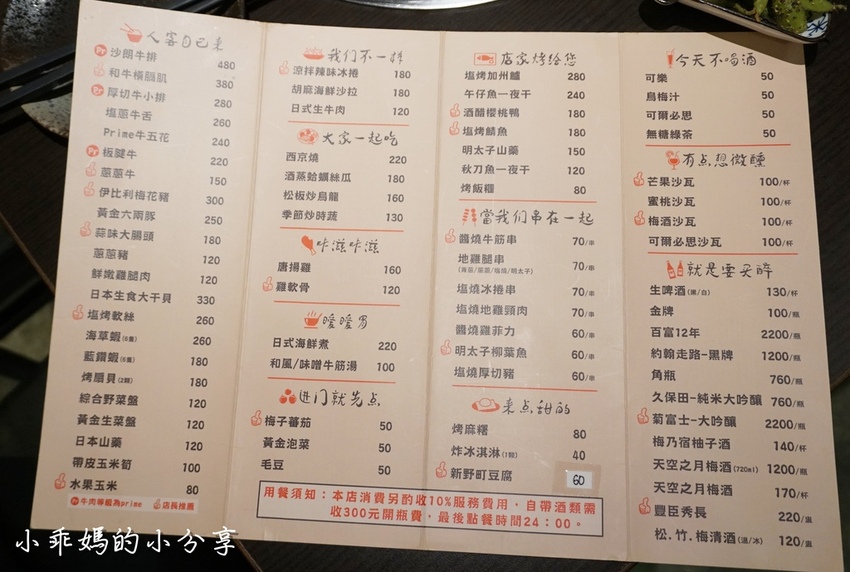 人客自己來
Pr 沙朗牛排 480
和牛橫膈肌 380
Pr 厚切牛小排 280
塩蔥牛舌 260
Prime牛五花 240
Pr 板腱牛 220
蔥蔥牛 150
伊比利梅花豬 300
黃金六兩豚 250
蒜味大腸頭 180
蔥蔥豬 120
鮮嫩雞腿肉 120
日本生食大干貝 330
塩烤軟絲 260
海草蝦(6隻) 260
藍鑽蝦(6隻) 180
烤扇貝(2顆) 180
綜合野菜盤 120
黃金生菜盤 120
日本山藥 120
帶皮玉米筍 100
水果玉米 80
Pr 牛肉等級為prime 店長推薦
我们不一样
涼拌辣味冰捲 180
胡麻海鮮沙拉 180
日式生牛肉 120
大家一起吃
西京燒 220
酒蒸蛤蠣絲瓜 180
松板炒烏龍 160
季節炒時蔬 130
咔滋咔滋
唐揚雞 160
雞軟骨 120
暖暖胃
日式海鮮煮 220
和風/味噌牛筋湯 100
进门就先点
梅子蕃茄 50
黃金泡菜 50
毛豆 50
店家烤給您
塩烤加州鱸 280
午仔魚一夜干 240
酒醋櫻桃鴨 180
塩烤鯖魚 180
明太子山藥 150
秋刀魚一夜干 120
烤飯糰 80
當我们串在一起
醬燒牛筋串 70/串
地雞腿串 70/串
塩燒冰捲串 70/串
塩燒地雞頸肉 70/串
醬燒雞菲力 60/串
明太子柳葉魚 60/串
塩燒厚切豬 60/串
来点甜的
烤麻糬 80
炸冰淇淋(1顆) 40
新野町豆腐 60
今天不喝酒
可樂 50
烏梅汁 50
可爾必思 50
無糖綠茶 50
有点想微醺
芒果沙瓦 100/杯
蜜桃沙瓦 100/杯
梅酒沙瓦 100/杯
可爾必思沙瓦 100/杯
就是要买醉
生啤酒(黑/白) 130/杯
金牌 100/瓶
百富12年 2200/瓶
約翰走路-黑牌 1200/瓶
角瓶 760/瓶
久保田-純米大吟釀 760/瓶
菊富士-大吟釀 2200/瓶
梅乃宿柚子酒 140/杯
天空之月梅酒(720ml) 1200/瓶
天空之月梅酒 170/杯
豐臣秀長 220/壺
松.竹.梅清酒(溫/冰) 120/壺
用餐須知：本店消費另酌收10%服務費用，自帶酒類需
收300元開瓶費，最後點餐時間24：00。
小乖媽的小分享